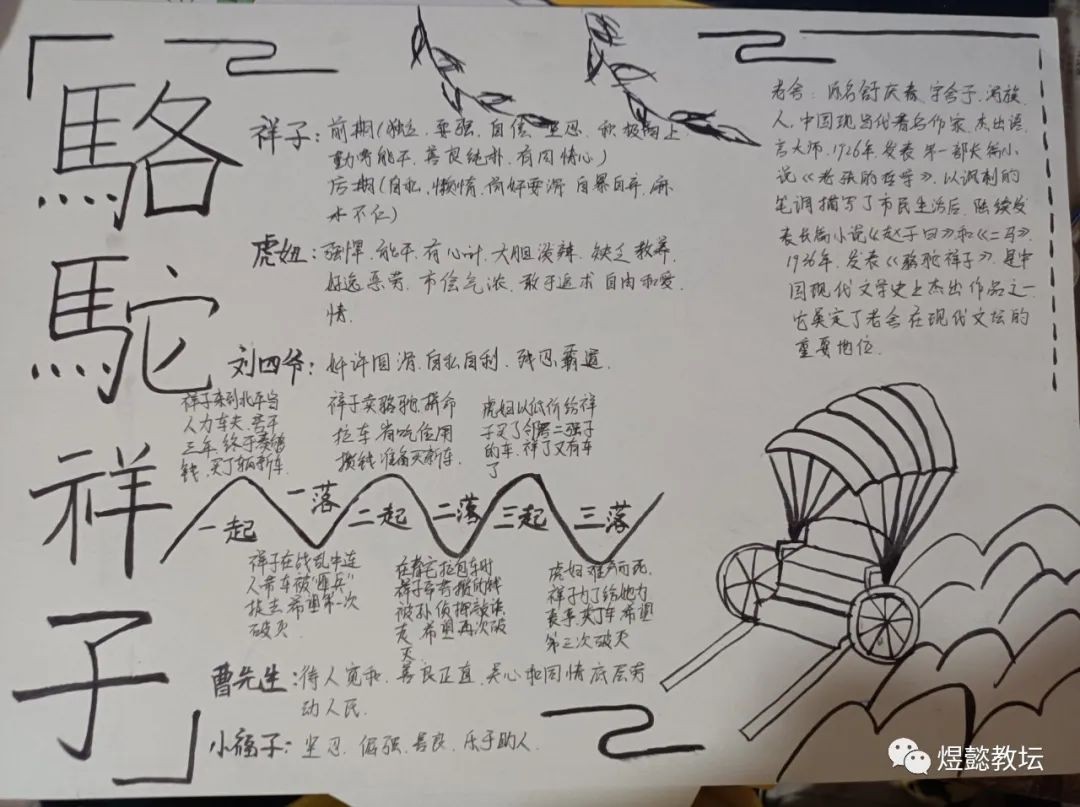 駱駝祥子
祥子：前期（独立、要强、自信、坚忍、积极向上
勤劳能干、善良纯朴、有同情心）
后期（自私、懒惰、尚奸要滑 自暴自弃、麻
木不仁）
虎妞：强悍、能干、有心计、大胆泼辣、缺乏教养、
好逸恶劳、市侩气浓、敢于追求自由和爱
情.
刘四爷：奸诈圆滑、自私自利、残忍、霸道.
祥子来到北平当
人力车夫、苦干
三年、终于攒够
钱、买了辆新车.
祥子卖骆驼、拼命
拉车、省吃俭用
攒钱准备买新车.
虎妞以低价给祥
子买了邻居二强子
的车、祥子又有车
了
一起
一落
二起
二落
三起
三落
祥子在战乱中连
人带车被“匪兵”
掠去、希望第一次
破灭.
在曹宅拉包车时
祥子所有攒的钱
被孙侦探敲诈
走 希望再次破
灭
虎妞难产而死,
祥子为了给她办
丧事、卖了车、希望
第三次破灭
曹先生：待人宽和、善良正直、关心和同情底层劳
动人民.
小福子：坚忍、倔强、善良、乐于助人.
老舍：原名舒庆春、字舍予、满族
人、中国现当代著名作家、杰出语
言大师、1926年、发表第一部长篇小
说《老张的哲学》、以讽刺的
笔调描写了市民生活后、陆续发
表长篇小说《赵子曰》和《二马》、
1936年、发表《骆驼祥子》、是中
国现代文学史上杰出作品之一
它奠定了老舍在现代文坛的
重要地位.
煜懿教坛